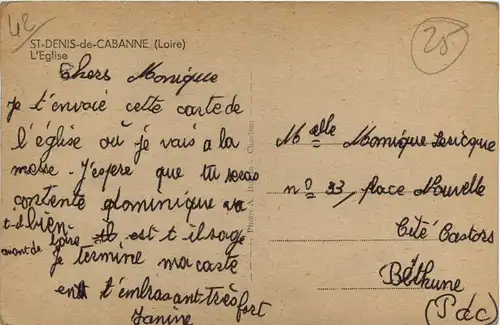 42
25
ST-DENIS-de-CABANNE (Loire)
L'Eglise
Chers Monique
je t'envoié cette carte de
l'église où je vais a la
messe. J'espère que tu serais
contente glominique va
t-il bien
avant de boire il est t il sage
je termine ma carte
en t'embrasant très fort
Janine
Photo A.
Charlieu
Melle Monique
no 33, place Nouvelle
Cité Castors
Béthune
(Pdc)